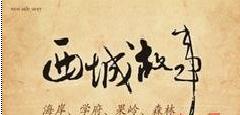 西城故事
海岸、学府、果岭、森林